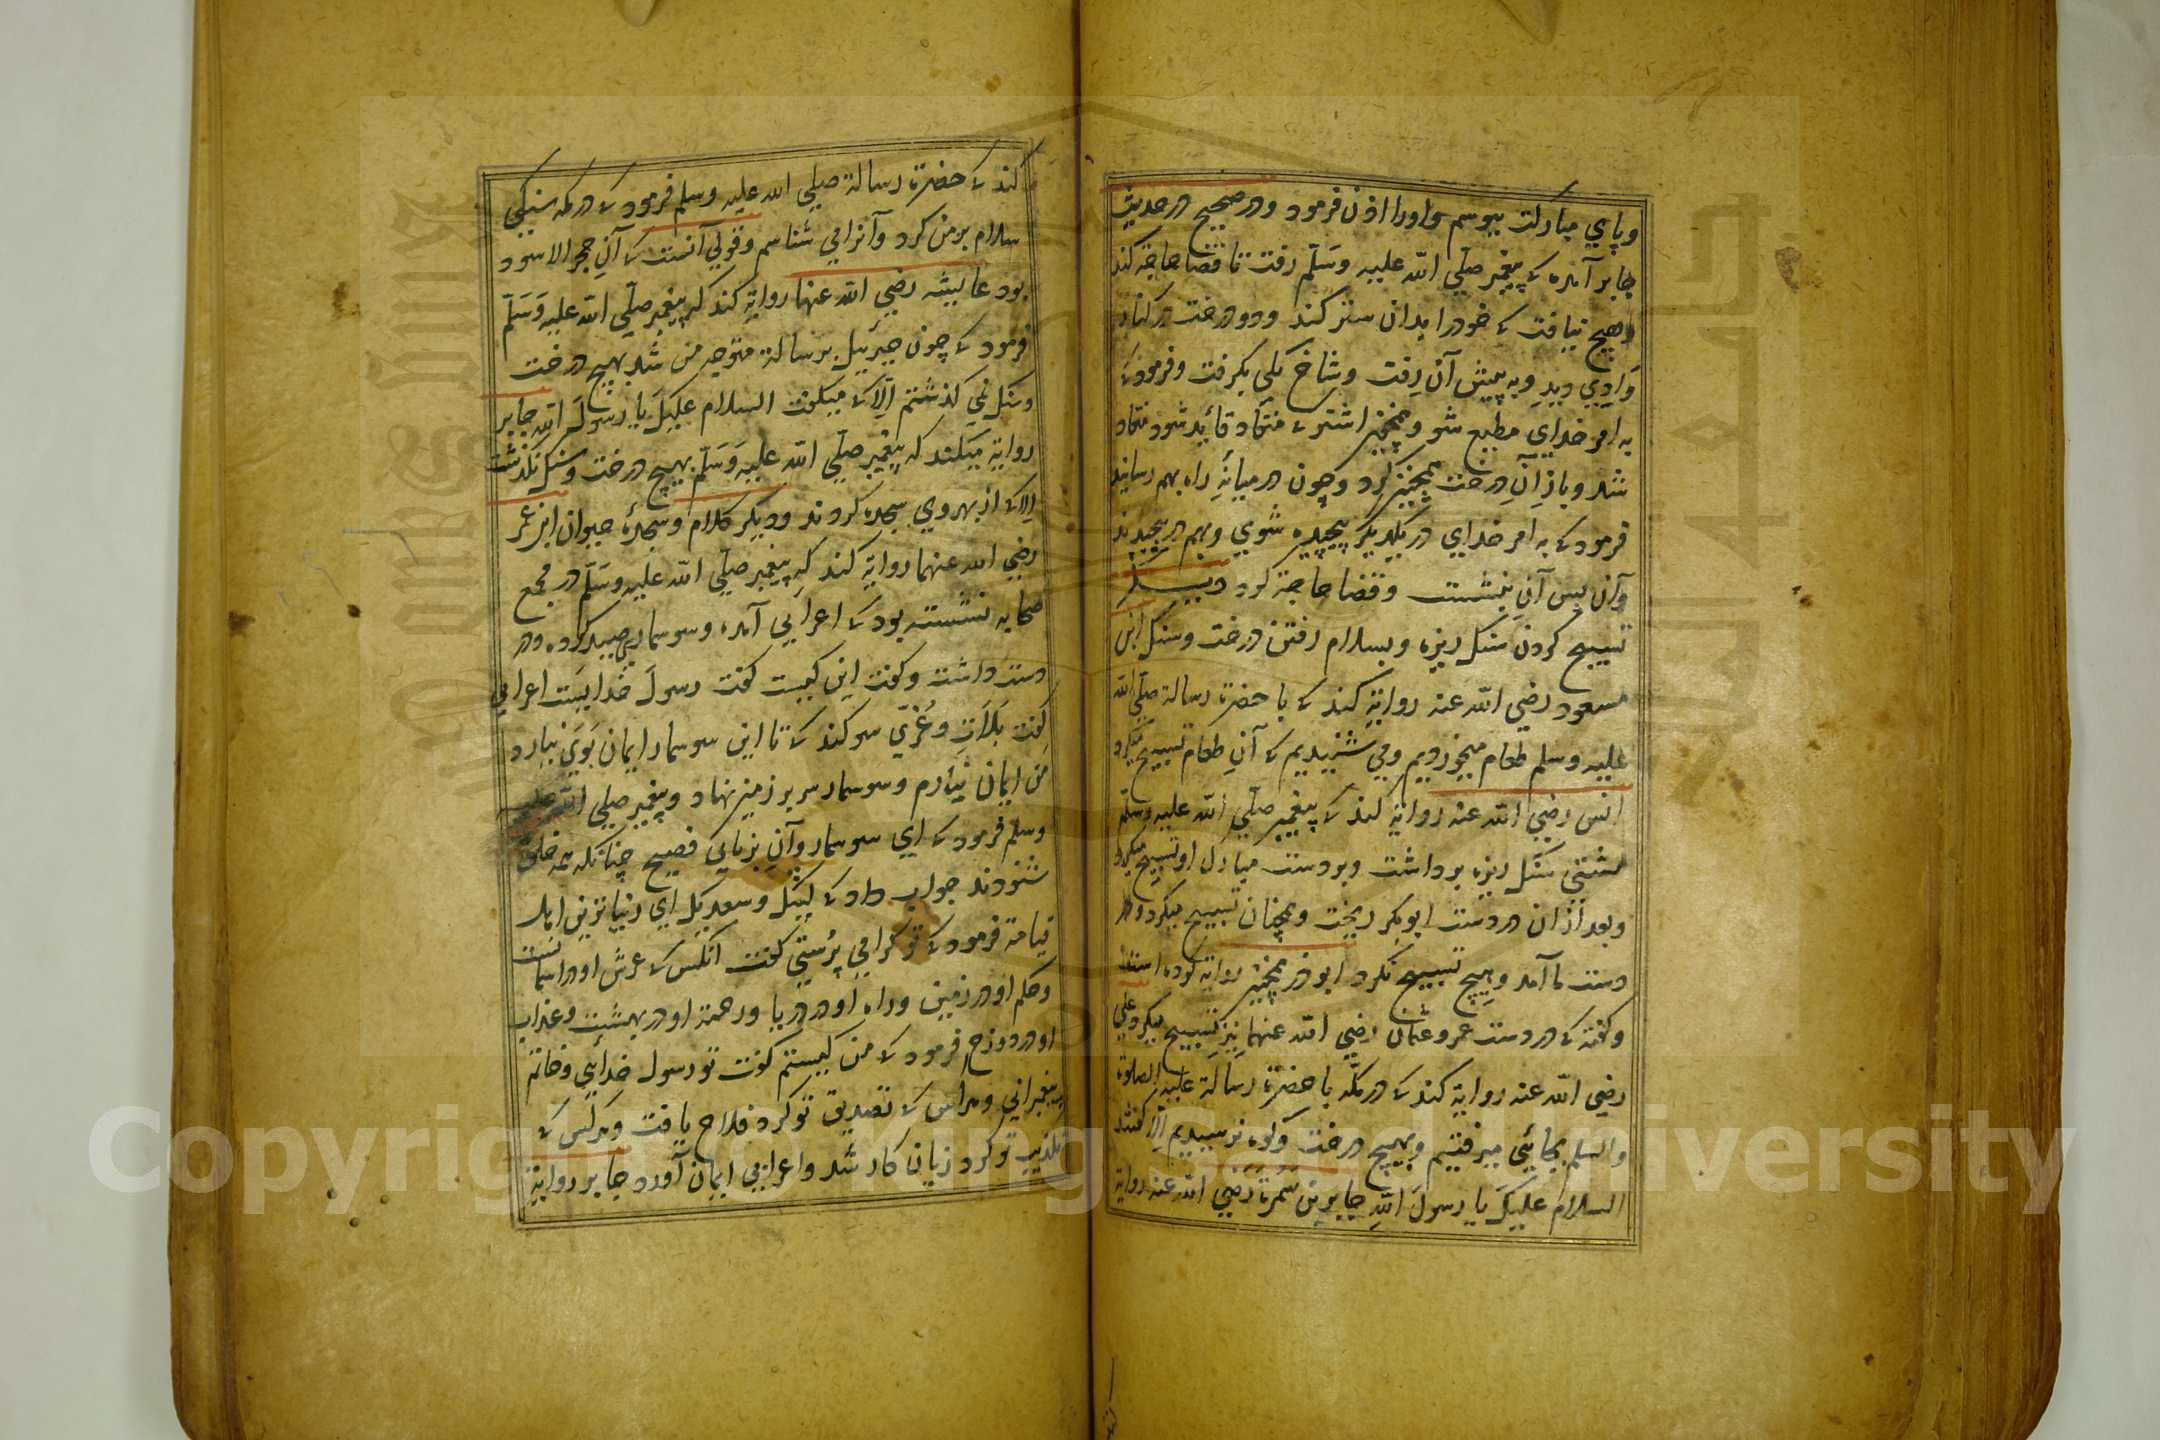 وپاي مبارکت ببوسم واورا اذن فرمود ودر صحيح در حديث
جابر آمده که پيغمبر صلّي اللّه عليه وسلّم رفت تا قضا حاجة کند
وهيچ نيافت که خودرا بدان ستر کند ودو درخت در کنار
وادي ديد وبه پيش آن رفت وشاخ يکي بکرفت وفرمود که
به امر خداي مطيع شو وهمچنين اشتر که منقاد قائد شود منقاد
شد وباز آن درخت همچنين کرد وچون در ميانهٔ راه بهم رسانيد
فرمود که به امر خداي در يکديکر پيچيده شوي وبهم در پيچيدند
وآن پس آن بنشست وقضا حاجة کرد ديکر
تسبيح کردن سنک ريزه وبسلام رفتن درخت وسنک ابن
مسعود رضي اللّه عنه رواية کند که با حضرة رسالة صلّي اللّه
عليه وسلم طعام ميخورديم ومي شنيديم که آن طعام تسبيح ميکرد
انس رضي اللّه عنه رواية کند که پيغمبر صلّي اللّه عليه وسلّم
مشتي سنک ريزه برداشت وبر دست مبارک او تسبيح ميکرد
وبعد ازان در دست ابوبکر ريخت وهمچنان تسبيح ميکرد ودر
دست ما آمد وهيچ تسبيح نکرد ابو ذر همچنين رواية کرده است
وکفته که در دست عمر وعثمان رضي اللّه عنهما نيز تسبيح ميکرد علي
رضي اللّه عنه رواية کند که در مکّه با حضرة رسالة عليه الصلوة
والسلم بجائي ميرفتيم وبهيچ درخت وکوه نرسيديم الّا که کفتند
السلام عليک يا رسولَ اللّهِ جابر بن سمرة رضي اللّه عنه رواية
کند که حضرة رسالة صلي الله عليه وسلم فرمود که در مکه سنکي
سلام بر من کرد وآنرا مي شناسم وقولي آنست که آن حجر الاسود
بود عايشه رضي اللّه عنها رواية کند که پيغمبر صلّي اللّه عليه وَسَلّم
فرمود که چون جبرئيل برسالة متوجه من شد بهيچ درخت
وسنک نمي کذشتم الّا که ميکفت السلام عليک يا رسولَ اللّه جابر
رواية ميکند که پيغمبر صلّي اللّه عليه وَسَلّم بهيچ درخت وسنک نکذشت
الا که از بهر وي سجده کردند وديکر کلام وسجدهٔ حيوان ابن عمر
رضي اللّه عنهما رواية کند که پيغمبر صلّي اللّه عليه وسلّم در مجمع
صحابه نشسته بود که اعرابي آمد وسوسماري صيد کرده ودر
دست داشت وکفت اين کيست کفت رسول خدايست اعرابي
کفت بلاتِ وعُزّي سوکند که تا اين سوسمار ايمان بوي نيارد
من ايمان نيارم وسوسمار سر بر زمين نهاد وپيغمبر صلي اللّه عليه
وسلم فرمود که اي سوسمار وآن بزباني فصيح چنانکه همه خلق
شنودند جواب داد که لبيک وسعديک اي زينا ترين اهل
قيامة فرمود که تو کرا مي پرستي کفت آنکس که عرش او در آسمانست
وحکم او در زمين وراه او در دريا ورحمة او در بهشت وعذاب
او در دوزخ فرمود که من کيستم کفت تو رسول خدائي وخاتم
پيغمبراني وهر کس که تصديق تو کرد فلاح يافت وهر کس که
تکذيب تو کرد زيان کار شد واعرابي ايمان آورد جابر رواية
Copyright © King Saud University